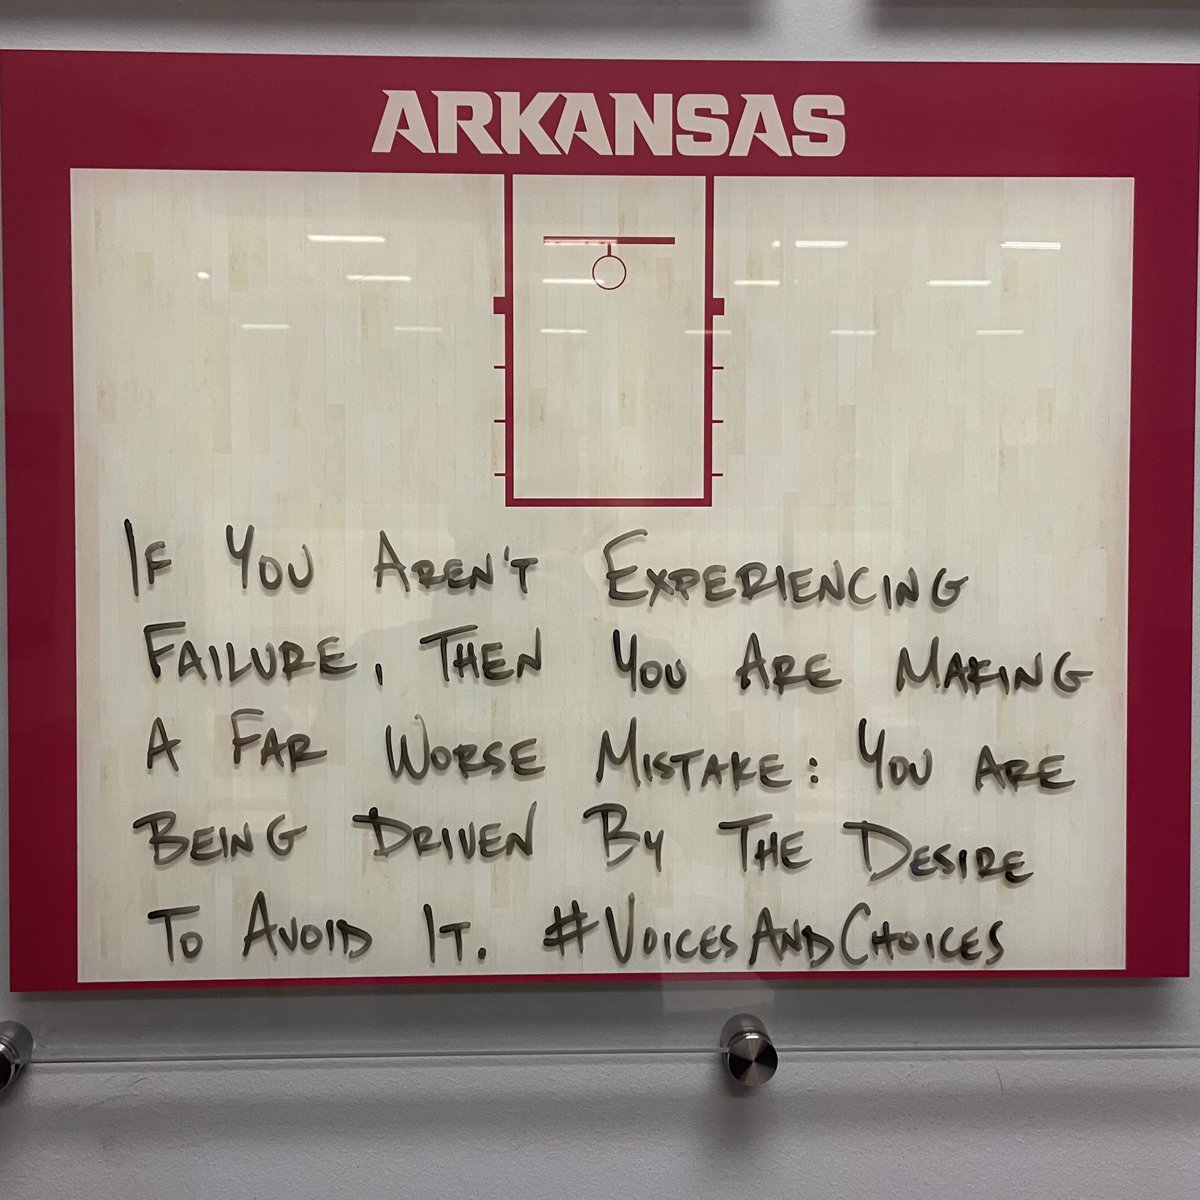 ARKANSAS
If You Aren't Experiencing
Failure, Then You Are Making
A Far Worse Mistake: You Are
Being Driven By The Desire
To Avoid It. #VoicesAndChoices